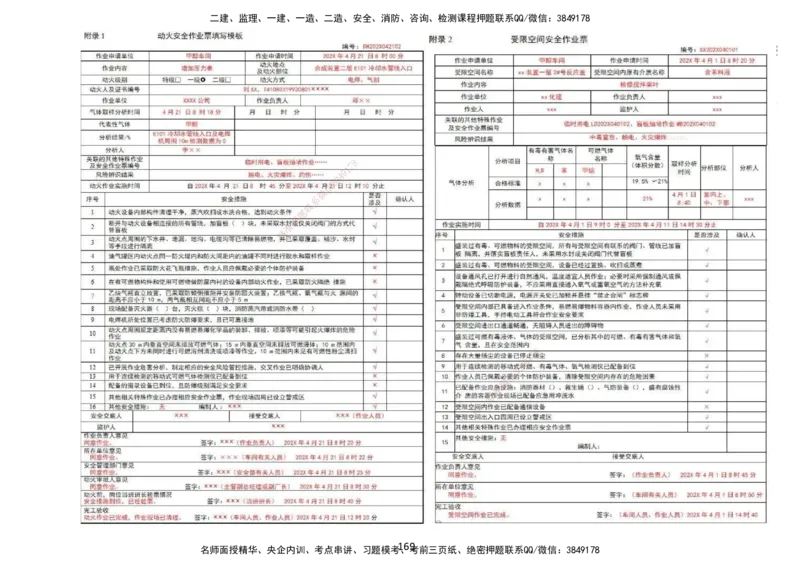 二建、监理、一建、一造、二造、安全、消防、咨询、检测课程押题联系QQ/微信：3849178
附录 1 动火安全作业票填写模板
编号：DH202X042102
作业申请单位 甲醇车间 作业申请时间 202X 年 4 月 21 日 8 时 00 分
作业内容 增加压力表 动火地点及动火部位 合成装置二层 K101 冷却水管线入口
动火级别 特级□ 一级 二级□ 动火方式 电焊、气割
动火人及证书编号
作业单位 XXXX 公司 作业负责人 邓××
气体取样分析时间 4 月 21 日 8 时 18 分 月 日 时 分 月 日 时 分
代表性气体 甲醇
分析结果/% K101 冷却水管线入口及电焊机周围 10m 检测数据为 0
分析人 李××
关联的其他特殊作业及安全作业票编号 临时用电、盲板抽堵作业……
风险辨识结果 触电、火灾爆炸、灼伤……
动火作业实施时间 自 202X 年 4 月 21 日 8 时 45 分至 202X 年 4 月 21 日 12 时 00 分止
序号 安全措施 是否涉及 确认人
1 动火设备内部构件清理干净，蒸汽吹扫或水洗合格，达到动火条件 √
2 断开与动火设备相连接的所有管线，加盲板（ ）块，未采取水封或仅关闭阀门的方式代替盲板 √
3 动火点周围的下水井、地漏、地沟、电缆沟等已清除易燃物，并已采取覆盖、铺沙、水封等手段进行隔离 √
4 油气罐区内动火点同一防火堤内和防火间距内的油罐不同时进行脱水和取样作业 ×
5 高处作业已采取防火花飞溅措施，作业人员佩戴必要的个体防护装备 ×
6 在有可燃物构件和使用可燃物做防腐内衬的设备内部动火作业，已采取防火隔绝措施 ×
7 乙炔气瓶直立放置，已采取防倾倒措施并安装防回火装置；乙炔气瓶、氧气瓶与火源间的距离不应小于 10 m，两气瓶相互间距不应小于 5 m √
8 现场配备灭火器（ ）台，灭火毯（ ）块，消防蒸汽带或消防水带（ ） √
9 电焊机所处位置已考虑防火防爆要求，且已可靠接地 √
10 动火点周围规定距离内没有易燃易爆化学品的装卸、排放、喷漆等可能引起火灾爆炸的危险作业 √
11 动火点 30 m 内垂直空间未排放可燃气体；15 m 内垂直空间未排放可燃液体；10 m 范围内及动火点下方未同时进行可燃溶剂清洗或喷漆等作业，10 m 范围内未见有可燃性粉尘清扫作业 √
12 已开展作业危害分析，制定相应的安全风险管控措施，交叉作业已明确协调人 √
13 用于连续检测的移动式可燃气体检测仪已配备到位 ×
14 配备的摄录设备已到位，且防爆级别满足安全要求 ×
15 其他相关特殊作业已办理相应安全作业票，作业现场四周已设立警戒区 √
16 其他安全措施：无 编制人：×××
安全交底人 ××× 接受交底人 ×××（作业人员）
监护人 ×××
作业负责人意见
同意作业。 签字：×××（作业负责人） 202X 年 4 月 21 日 8 时 20 分
所在单位意见
同意作业。 签字：×××（车间有关人员） 202X 年 4 月 21 日 8 时 22 分
安全管理部门意见
同意作业。 签字：×××（安全部有关人员） 202X 年 4 月 21 日 8 时 25 分
动火审批人意见
同意作业。 签字：×××（主管副总经理或副厂长） 202X 年 4 月 21 日 8 时 30 分
动火前，岗位当班班长验票情况
安全措施到位，已经验票。 签字：×××（当班班长） 202X 年 4 月 21 日 8 时 40 分
完工验收
动火作业已完成，作业现场已清理。 签字：×××（车间人员、作业人员）202X 年 4 月 21 日 12 时 20 分
附录 2 受限空间安全作业票
编号：SX202X040101
作业申请单位 甲醇车间 作业申请时间 202X 年 4 月 1 日 8 时 20 分
受限空间名称 ××装置一层 D#号反应釜 受限空间内原有介质名称
作业内容 检修搅拌桨叶
作业单位 ××化建 作业负责人 ×××
作业人 ××× 监护人 ×××
关联的其他特殊作业及安全作业票编号 临时用电 LD202X040102、盲板抽堵作业 MB202X040102
风险辨识结果 中毒窒息、触电、火灾爆炸……
气体分析 分析项目 有毒有害气体名称 可燃气体名称 氧气含量（体积分数） 取样分析时间 分析部位 分析人
H₂S 苯 甲烷
合格标准 × × × 19.5% ~21%
分析数据 × × × 21% 4 月 1 日 8:40 釜内上、中、下部 ×××
作业实施时间 自 202X 年 4 月 1 日 9 时 0 分至 202X 年 4 月 11 日 14 时 30 分止
序号 安全措施 是否涉及 确认人
1 盛装过有毒、可燃物料的受限空间，所有与受限空间有联系的阀门、管线已加盲板隔离，并落实盲板责任人，未采用水封或关闭阀门代替盲板 √
2 盛装过有毒、可燃物料的受限空间，设备已经过置换、吹扫或蒸煮 √
3 设备通风孔已打开进行自然通风，温度适宜人员作业；必要时采用强制通风或佩戴隔绝式呼吸防护装备，不应采用直接通入氧气或富氧空气的方法补充氧 √
4 转动设备已切断电源，电源开关处已加锁并悬挂“禁止合闸”标志牌 √
5 受限空间内部已具备进入作业条件，易燃易爆物料容器内作业，作业人员未采用非防爆工具，手持电动工具符合作业安全要求 √
6 受限空间进出口通道畅通，无阻碍人员进出的障碍物 √
7 盛装过可燃有毒液体、气体的受限空间，已分析其中的可燃、有毒有害气体和氧气含量，且在安全范围内 √
8 存在大量扬尘的设备已停止扬尘 ×
9 用于连续检测的移动式可燃、有毒气体、氧气检测仪已配备到位 √
10 作业人员已佩戴必要的个体防护装备，清楚受限空间内存在的危险因素 √
11 已配备作业应急设施：消防器材（ ）、救生绳（ ）、气防装备（ ），盛有腐蚀性介质的容器作业现场已配备应急用冲洗水 √
12 受限空间内作业已配备通信设备 ×
13 受限空间出入口四周已设立警戒区 √
14 其他相关特殊作业已办理相应安全作业票 √
15 其他安全措施：无
编制人：
安全交底人 接受交底人
作业负责人意见
同意作业。 签字：（作业负责人） 202X 年 4 月 1 日 8 时 45 分
所在单位意见
同意作业。 签字：（车间有关人员） 202X 年 4 月 1 日 8 时 50 分
完工验收
受限空间作业已完成。 签字：（车间人员、作业人员）202X 年 4 月 1 日 14 时 40 分
169
名师面授精华、央企内训、考点串讲、习题模考、考前三页纸、绝密押题联系QQ/微信：3849178